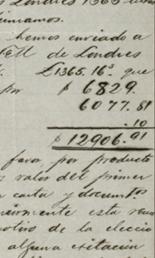 Londres 1365
hemos enviado a
de Londres
£1365.16º que
por $ 6829.
6077.81
.10
$12906.91
favor por producto
valor del primer
carta y documtos
esta
de la eleccio
alguna exitacion